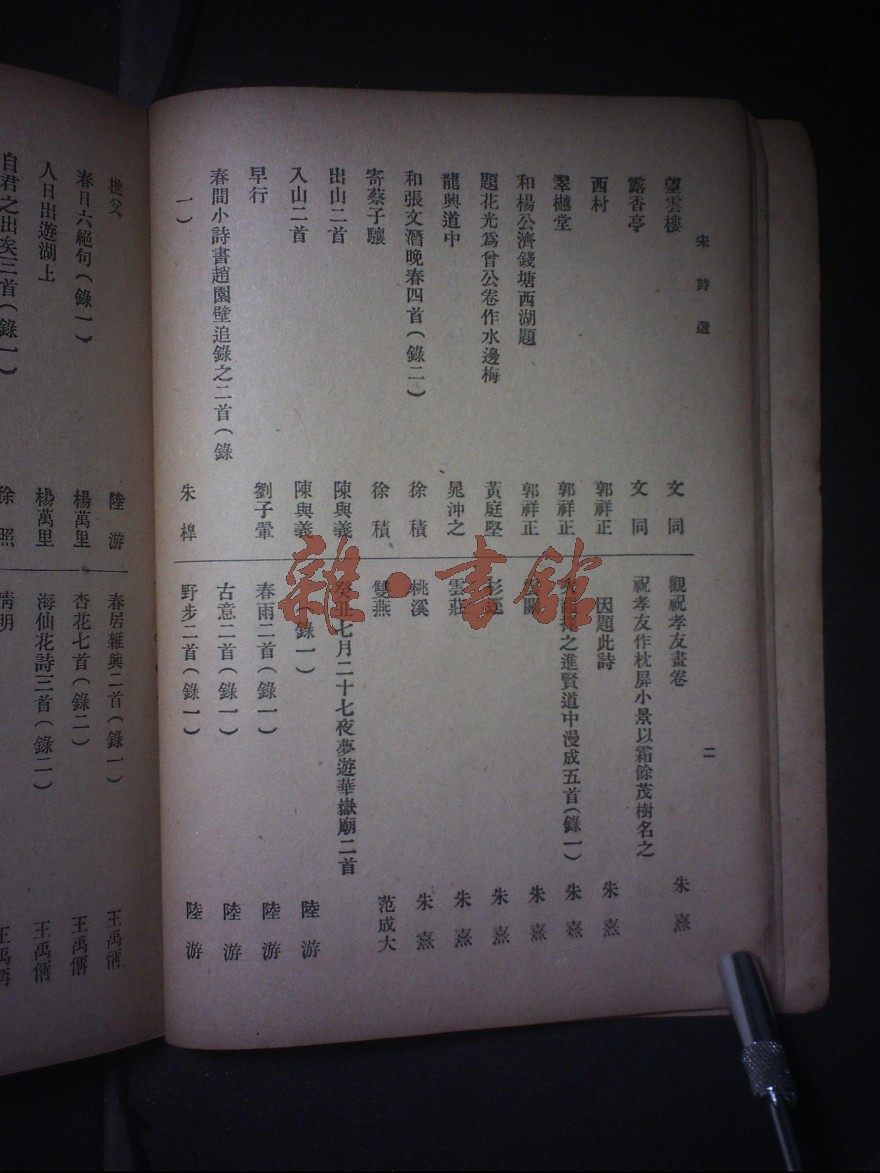 宋詩選
二
望雲樓 文同
露香亭 文同
西村 郭祥正
翠樾堂 郭祥正
和楊公濟錢塘西湖題 郭祥正
題花光爲曾公卷作水邊梅 黃庭堅
龍興道中 晁沖之
和張文潛晚春四首(錄二) 徐積
寄蔡子驤 徐積
出山二首 陳與義
入山二首 陳與義
早行 劉子翬
春間小詩書趙園壁追錄之二首(錄
一) 朱槔
觀祝孝友畫卷 朱熹
祝孝友作枕屏小景以霜餘茂樹名之
因題此詩 朱熹
之進賢道中漫成五首(錄一) 朱熹
朱熹
朱熹
雲莊 朱熹
桃溪 朱熹
雙燕 范成大
癸丑七月二十七夜夢遊華嶽廟二首
(錄一) 陸游
春雨二首(錄一) 陸游
古意二首(錄一) 陸游
野步二首(錄一) 陸游
樵父 陸游
春日六絕句(錄一) 楊萬里
人日出遊湖上 楊萬里
自君之出矣三首(錄一) 徐照
春居雜興二首(錄一) 王禹偁
杏花七首(錄二) 王禹偁
海仙花詩三首(錄二) 王禹偁
清明 王禹偁
雜·書館